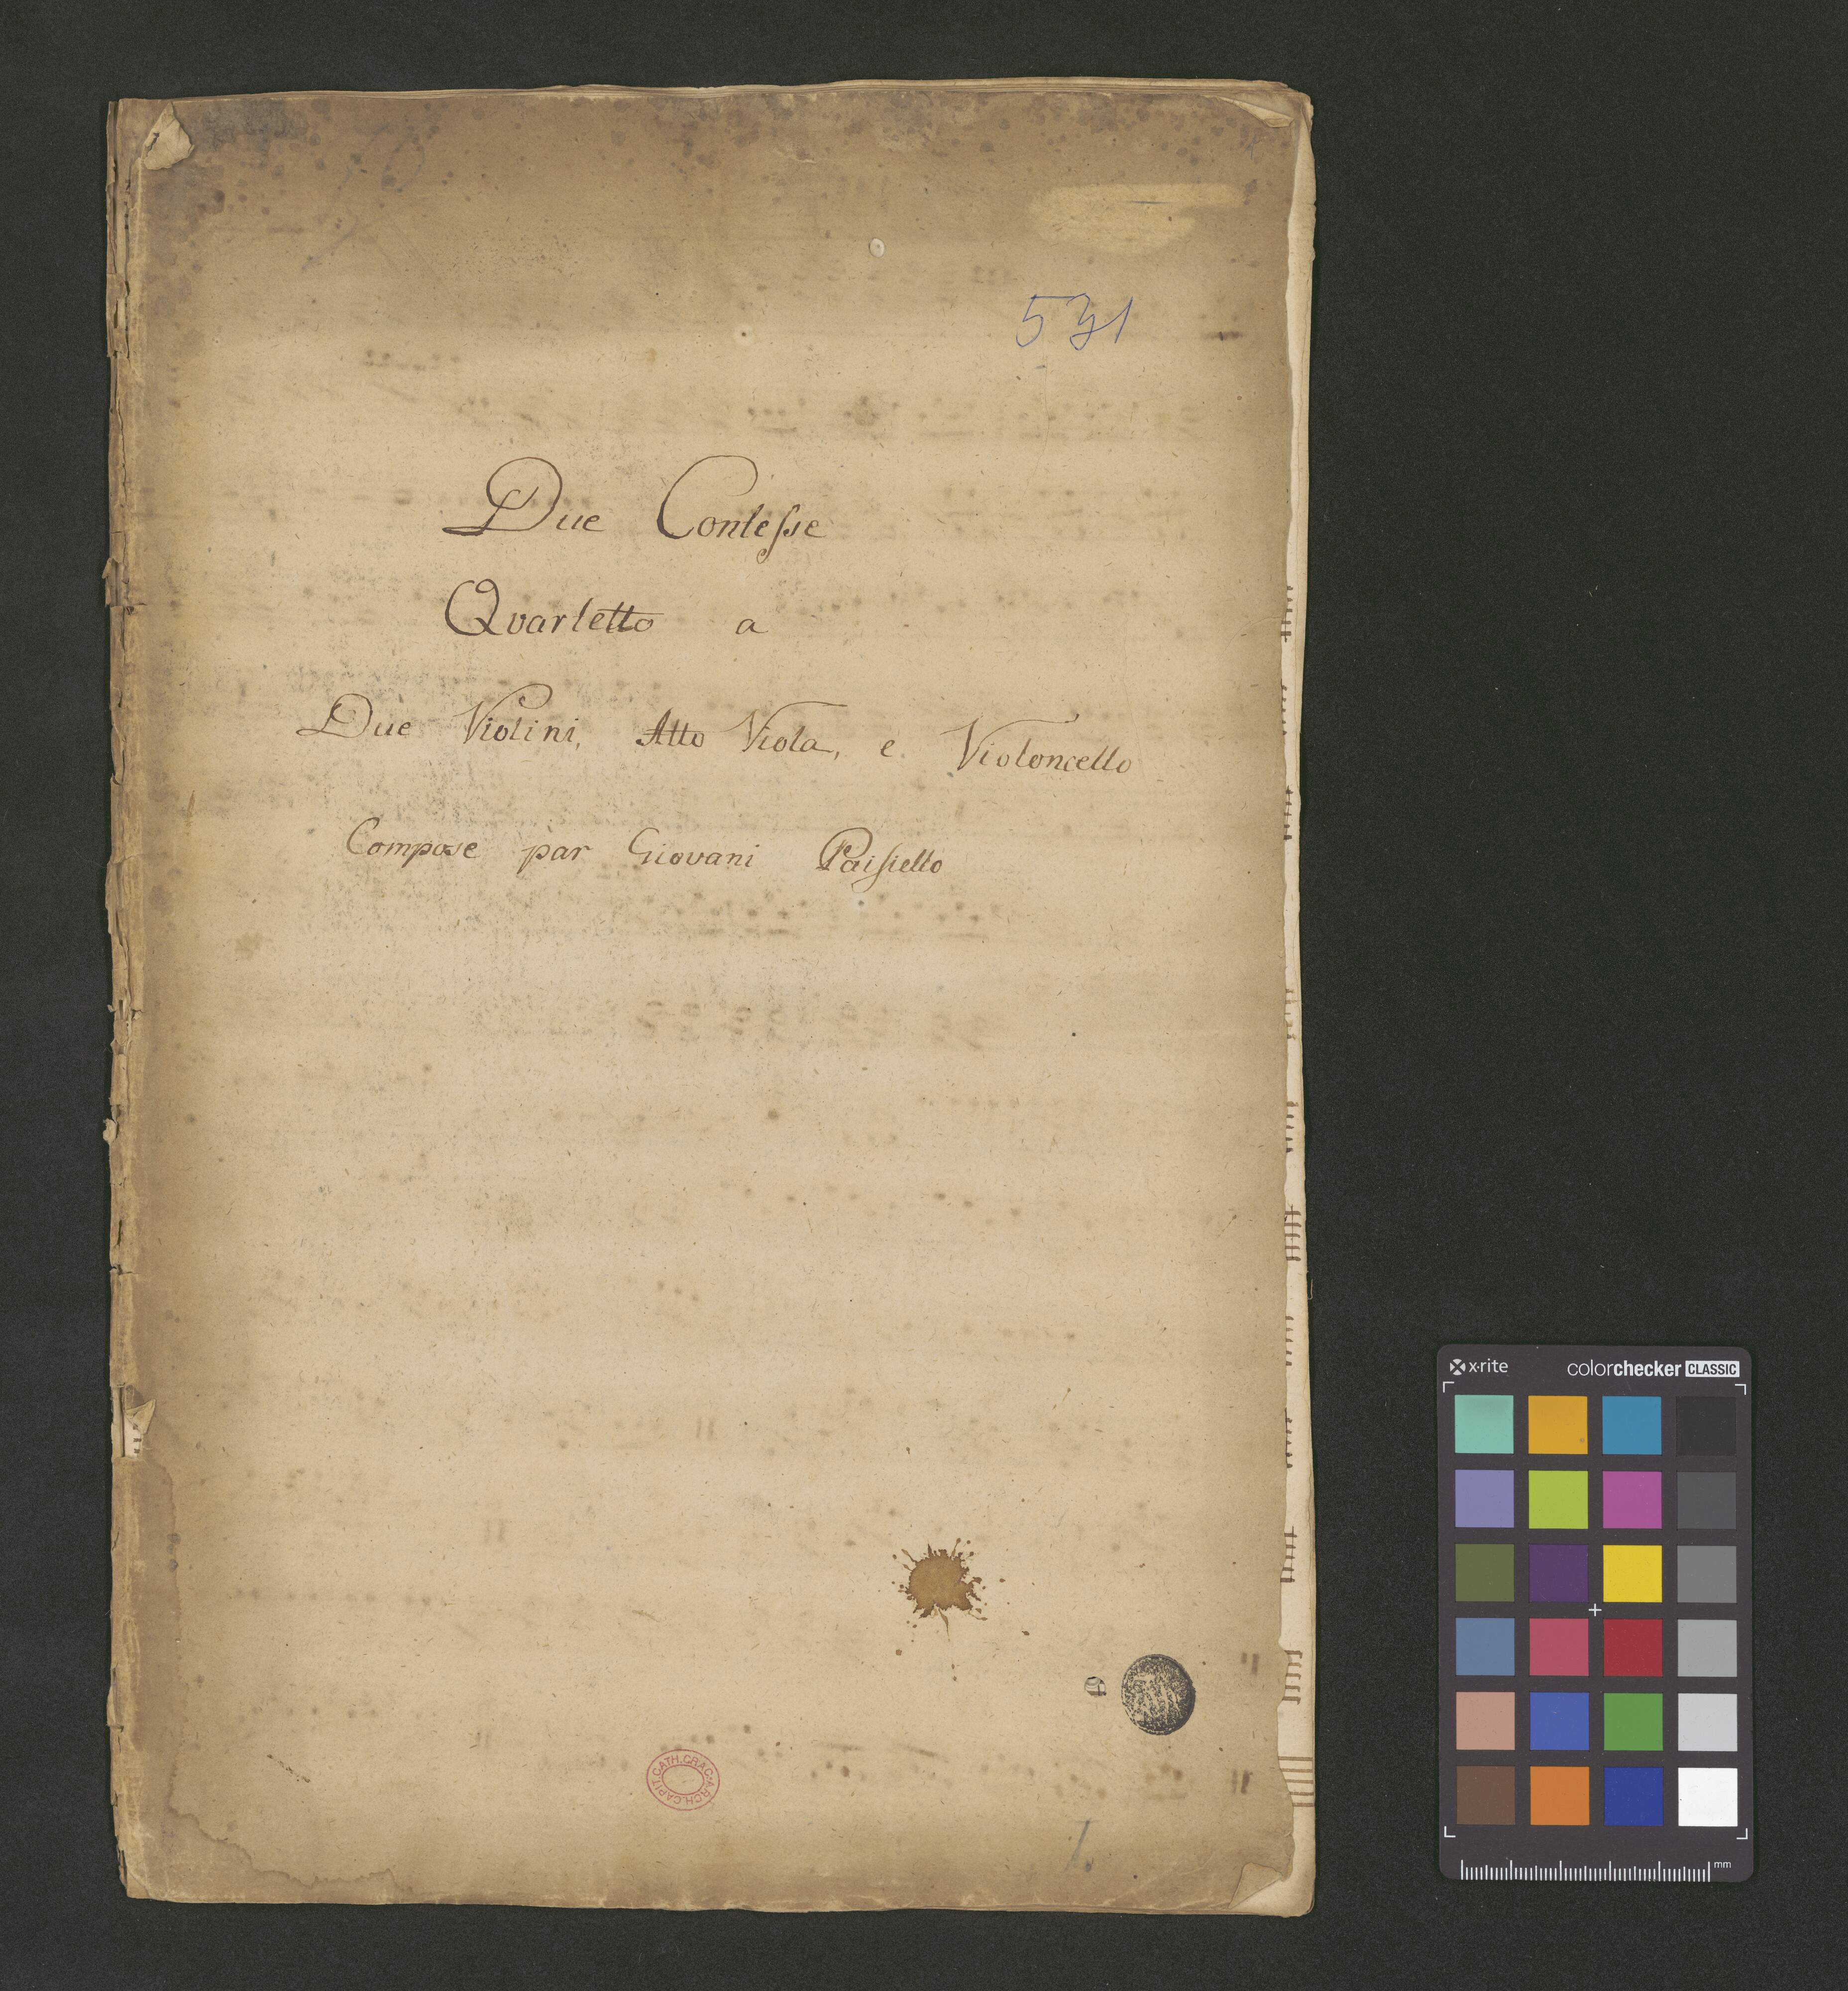 531
Due Contesse
Qvartetto a
Due Violini, Alto Viola, e Violoncello
Compose par Giovani Paisiello
CAPIT.CATH.CRAC.ARCH.
1.
x·rite colorchecker CLASSIC
mm